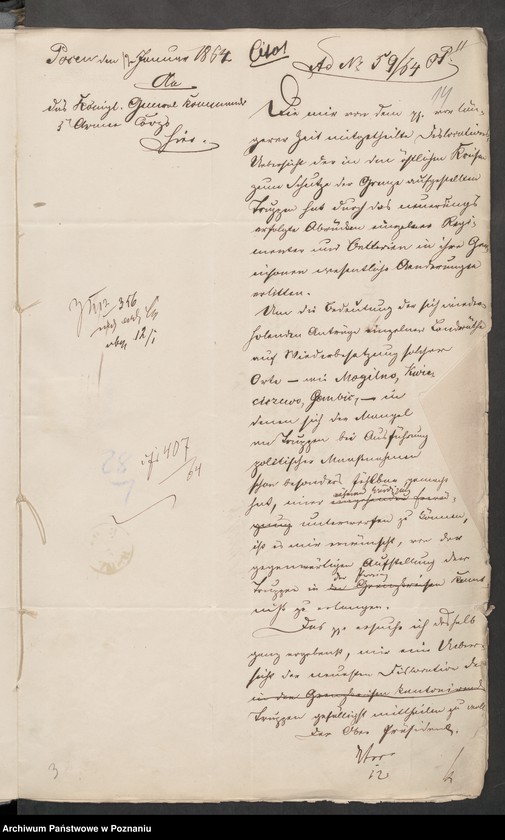 Posen den 12 Januar 1864
Cito!
Ad No 59/64 OP.
An
das Königl. General Kommando
5t Armee Corps
Hier.
14
Die mir von dem pp. vor län-
gerer Zeit mitgetheilte Dislocations
Uebersicht der in den östlichen Kreisen
zum Schutze der Grenze aufgestellten
Truppen hat durch das neuerdings
erfolgte Abrücken einzelner Regi-
menter und Batterien in ihre Gar-
nisonen wesentliche Aenderungen
erlitten.
Um die Bedeutung der sich wieder-
holenden Anträge einzelner Landräthe
auf Wiederbesetzung solcher
Orte – wie Mogilno, Kwie-
ciszewo, Gembic, – in
denen sich der Mangel
an Truppen bei Ausführung
politischer Maaßnahmen
schon besonders fühlbar gemacht
hat, einer
näheren Würdigung
unterwerfen zu können,
ist es mir erwünscht, von der
gegenwärtigen Aufstellung der
Truppen in
der Provinz
der Grenzkreisen Kennt
niß zu erlangen.
Das pp. ersuche ich deshalb
ganz ergebenst, mir eine Ueber-
sicht der neuesten Dislocation der
in den Grenzkreisen kantonirenden
Truppen gefälligst mittheilen zu wollen
Der Ober Präsident.
12
356
12/1
407
64
3
Archiwum Państwowe w Poznaniu